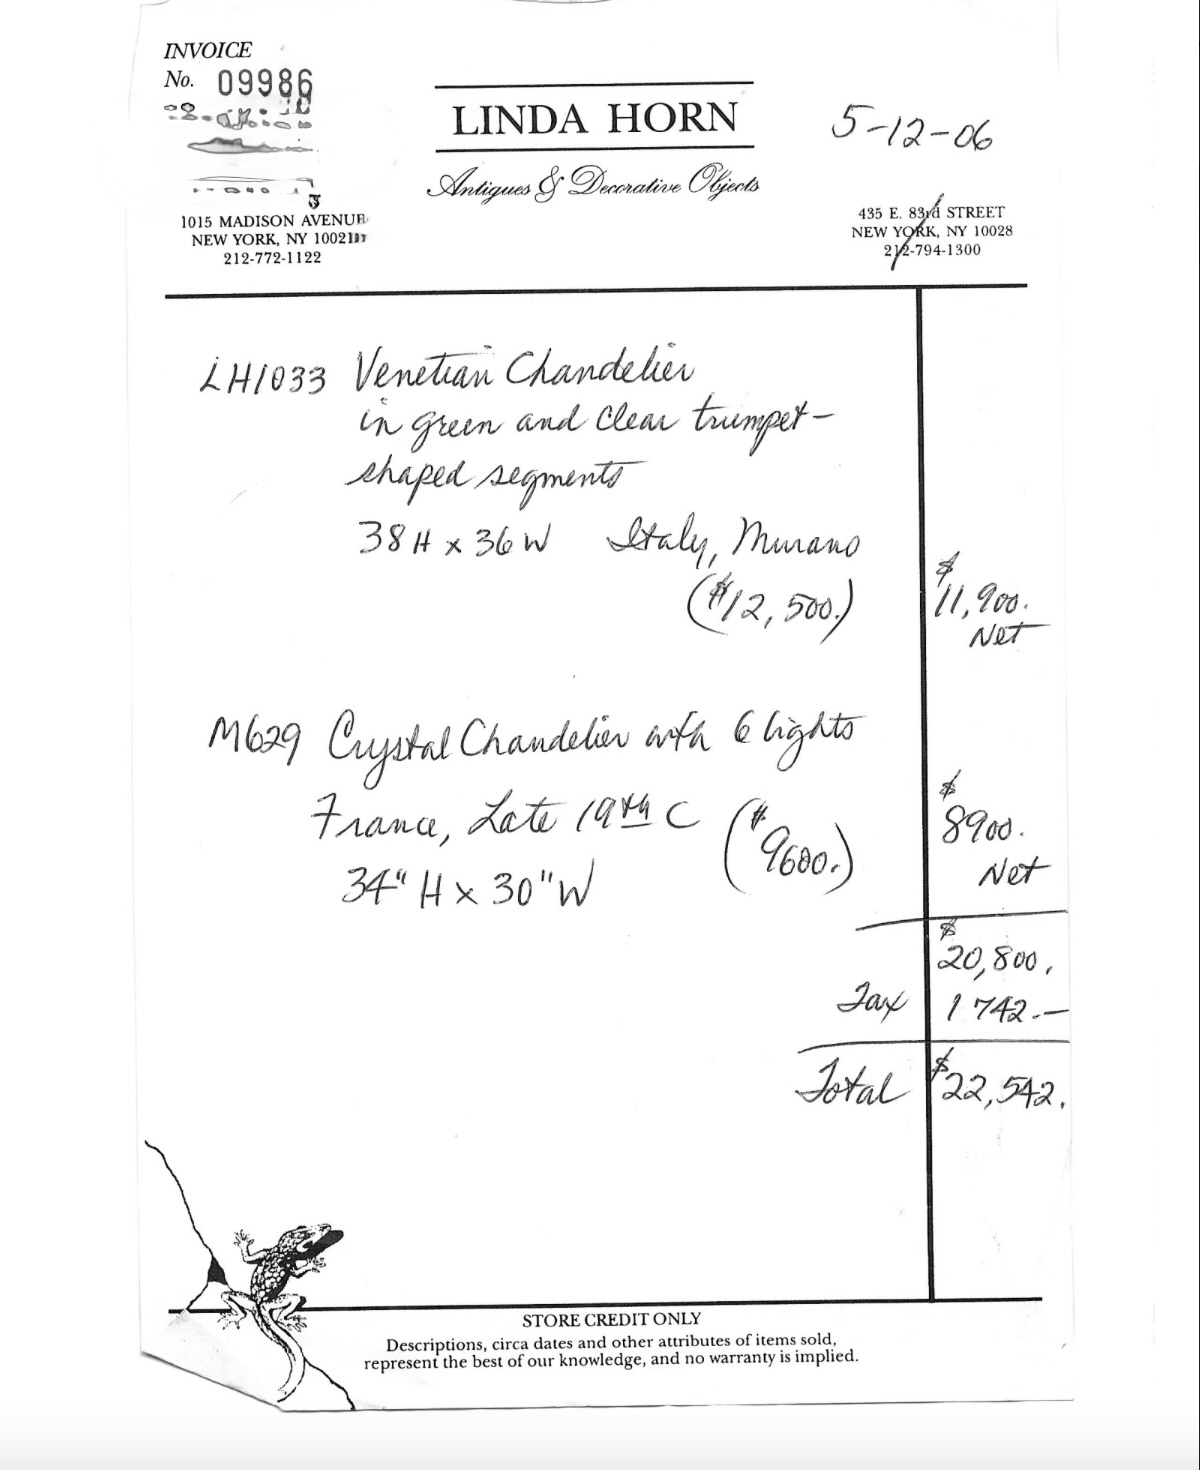 INVOICE
No. 09986
LINDA HORN
Antiques & Decorative Objects
5-12-06
1015 MADISON AVENUE
NEW YORK, NY 10021
212-772-1122
435 E. 83rd STREET
NEW YORK, NY 10028
212-794-1300
LH1033 Venetian Chandelier
in green and clear trumpet-
shaped segments
38 H x 36 W Italy, Murano
($12,500.) $11,900.
Net
M629 Crystal Chandelier with 6 lights
France, Late 19th C ($9600.) $8900.
34" H x 30" W Net
$20,800.
Tax 1742.—
Total $22,542.
STORE CREDIT ONLY
Descriptions, circa dates and other attributes of items sold,
represent the best of our knowledge, and no warranty is implied.